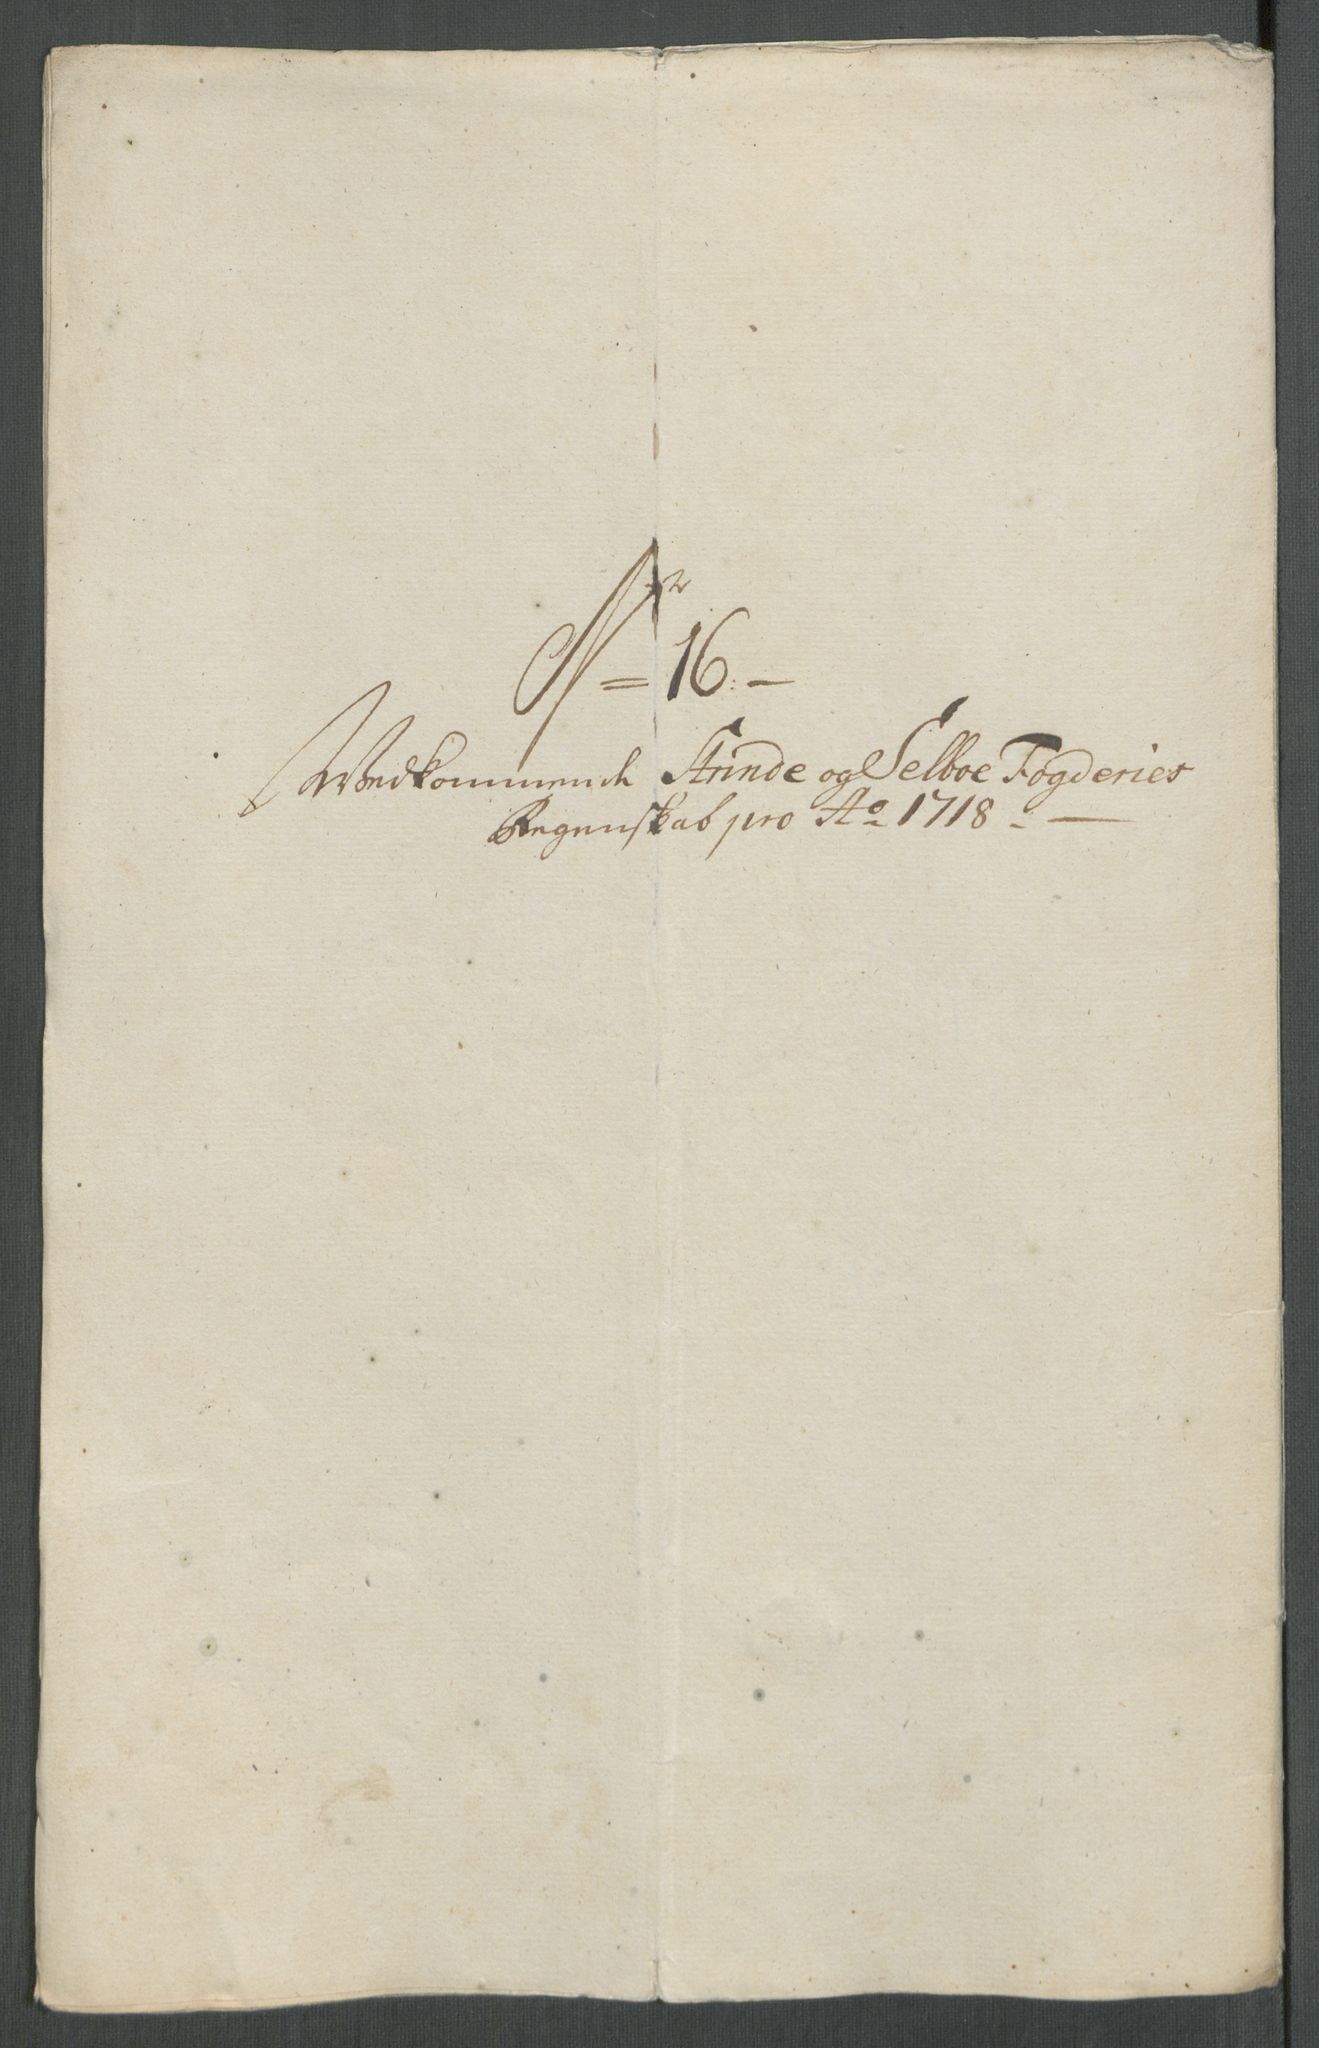 Nr = 16. -
Wedkommende Strinde og Selboe Fogderies
Regenskab pro Ao 1718. -